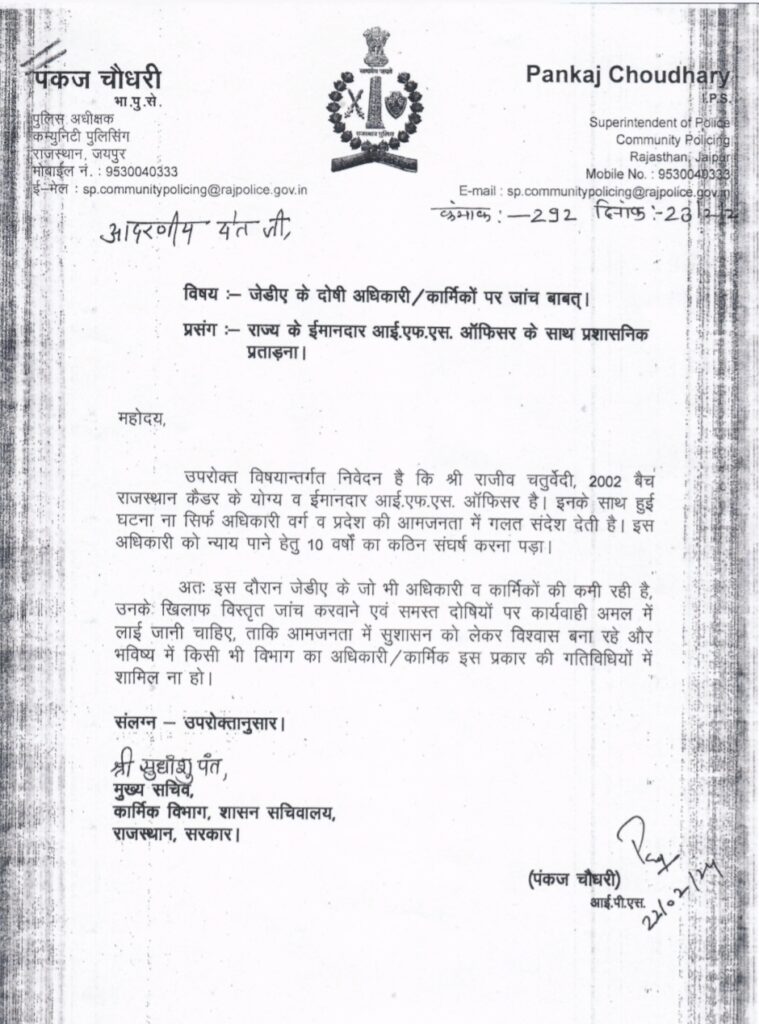 पंकज चौधरी
भा.पु.से.
पुलिस अधीक्षक
कम्युनिटी पुलिसिंग
राजस्थान, जयपुर
मोबाईल नं. : 9530040333
ई-मेल : sp.communitypolicing@rajpolice.gov.in
राजस्थान पुलिस
Pankaj Choudhary
I.P.S.
Superintendent of Police
Community Policing
Rajasthan, Jaipur
Mobile No. : 9530040333
E-mail : sp.communitypolicing@rajpolice.gov.in
क्रमांक :—292 दिनांक :-
आदरणीय पंत जी,
विषय :– जेडीए के दोषी अधिकारी/कार्मिकों पर जांच बाबत्।
प्रसंग :– राज्य के ईमानदार आई.एफ.एस. ऑफिसर के साथ प्रशासनिक
प्रताड़ना।
महोदय,
उपरोक्त विषयान्तर्गत निवेदन है कि श्री राजीव चतुर्वेदी, 2002 बैच
राजस्थान कैडर के योग्य व ईमानदार आई.एफ.एस. ऑफिसर है। इनके साथ हुई
घटना ना सिर्फ अधिकारी वर्ग व प्रदेश की आमजनता में गलत संदेश देती है। इस
अधिकारी को न्याय पाने हेतु 10 वर्षों का कठिन संघर्ष करना पड़ा।
अतः इस दौरान जेडीए के जो भी अधिकारी व कार्मिकों की कमी रही है,
उनके खिलाफ विस्तृत जांच करवाने एवं समस्त दोषियों पर कार्यवाही अमल में
लाई जानी चाहिए, ताकि आमजनता में सुशासन को लेकर विश्वास बना रहे और
भविष्य में किसी भी विभाग का अधिकारी/कार्मिक इस प्रकार की गतिविधियों में
शामिल ना हो।
संलग्न – उपरोक्तानुसार।
श्री सुधाँशु पंत,
मुख्य सचिव,
कार्मिक विभाग, शासन सचिवालय,
राजस्थान, सरकार।
(पंकज चौधरी)
आई.पी.एस.
22/02/24